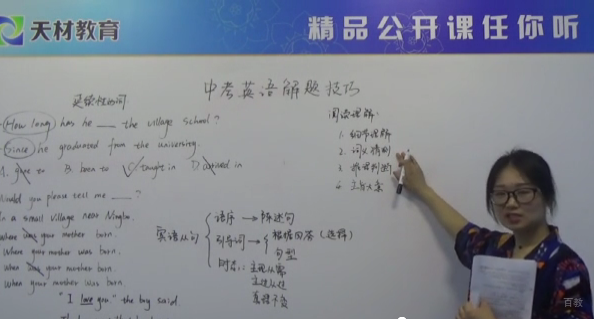 天材教育
精品公开课任你听
中考英语解题技巧
延续性动词
How long has he ___ the village school?
Since he graduated from the university.
A. gone to B. been to C. taught in D. arrived in
Would you please tell me ___?
In a small village near Ningbo.
where was your mother born.
where your mother was born.
when was your mother born.
when your mother was born
"I love you" the boy said
宾语从句
语序 → 陈述句
引导词 → 根据回答(选择)
句型
时态: 主现从需
主过从过
真理不负
阅读理解:
1. 细节理解
2. 词义猜测
3. 推理判断
4. 主旨大意
百教